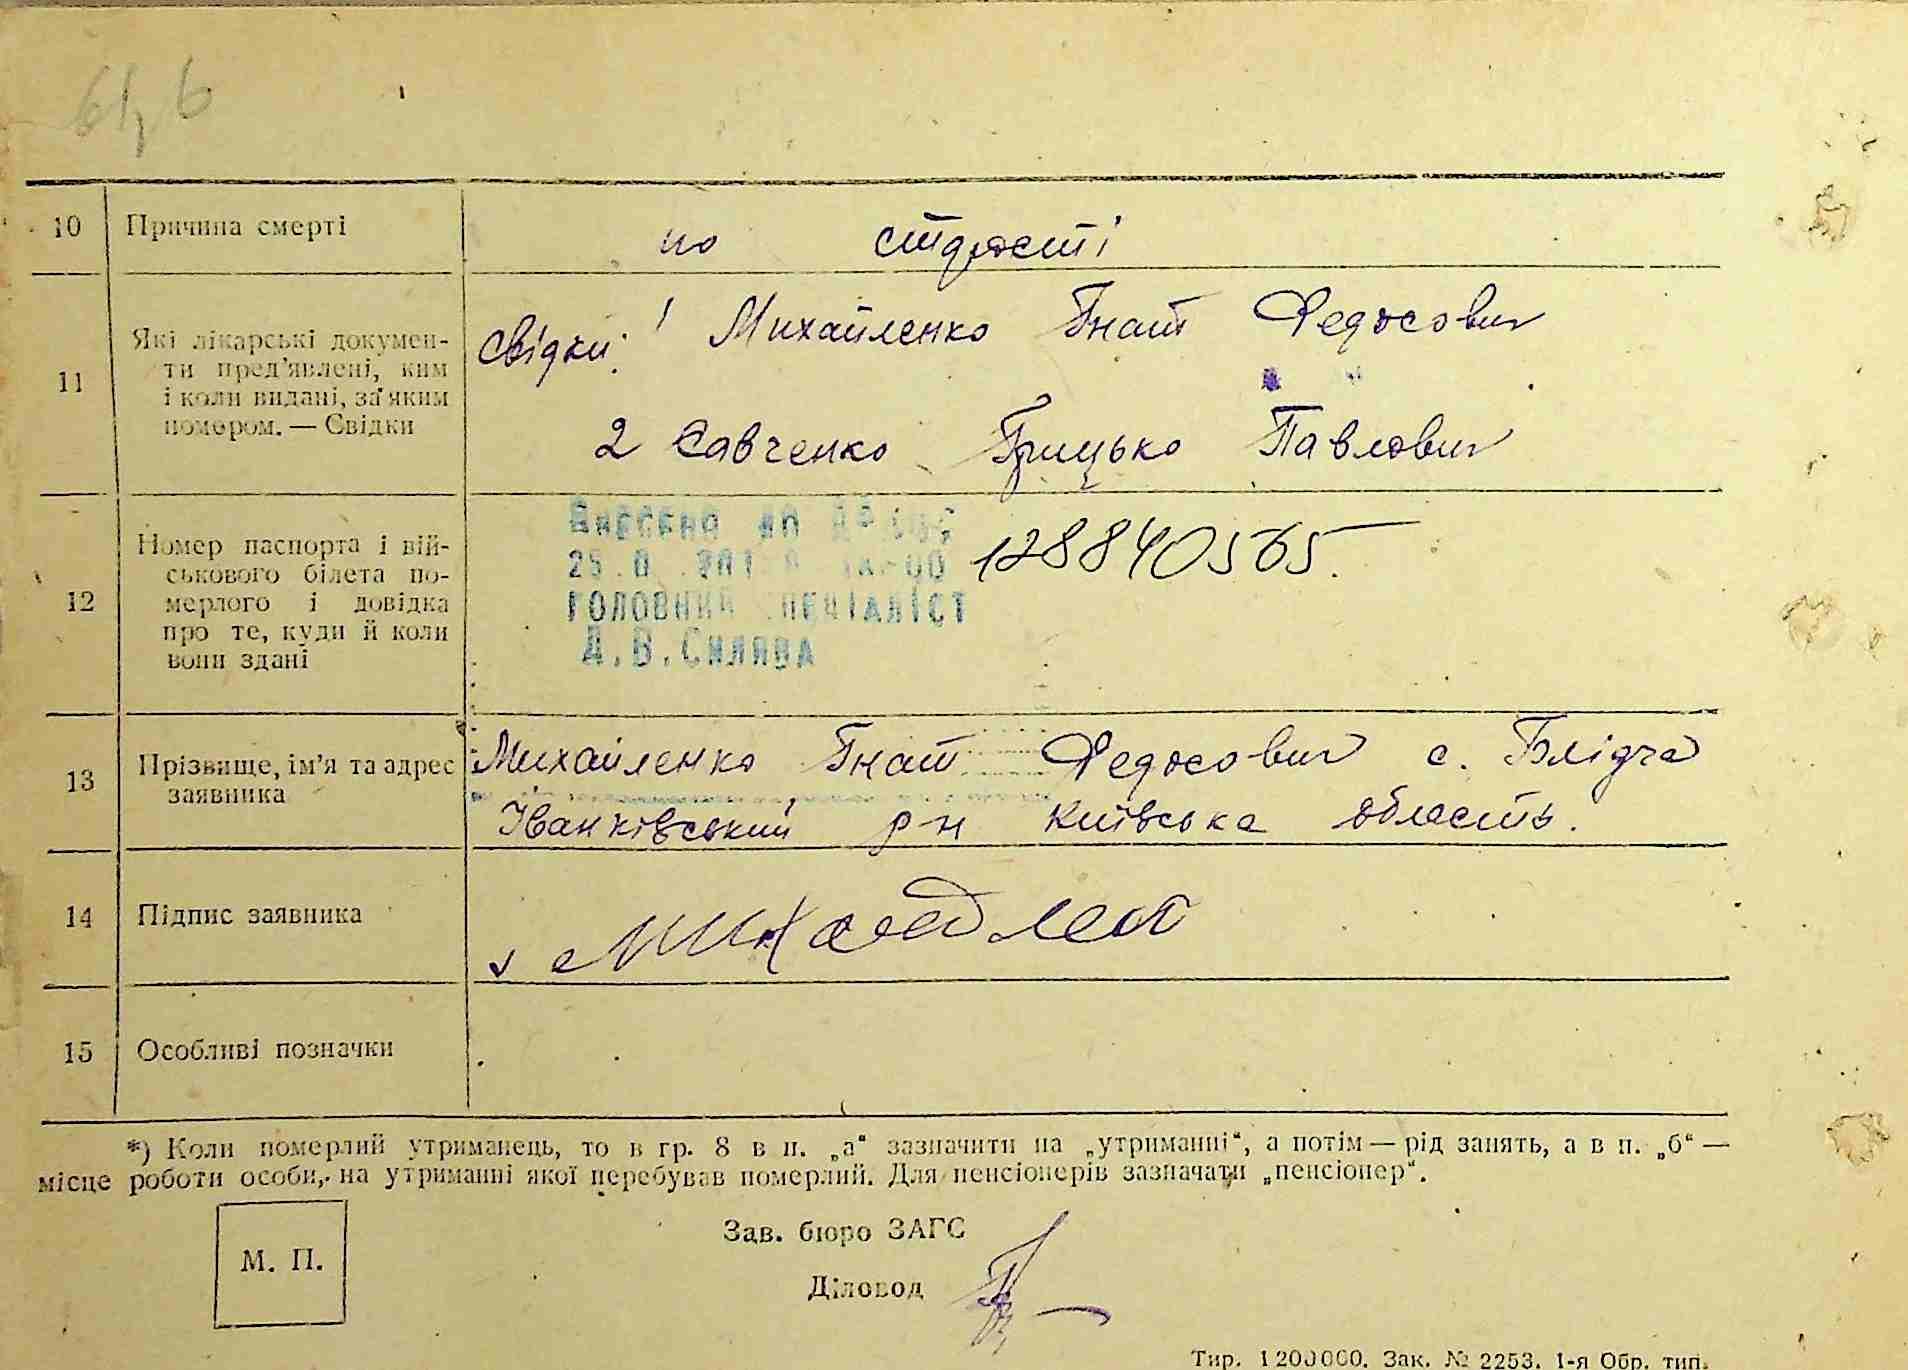 10 Причина смерті по старості
11 Які лікарські докумен-
ти пред'явлені, ким
і коли видані, за яким
номером. — Свідки
Свідки: 1 Михайленко Гнат Федосович
2 Савченко Грицько Павлович
12 Номер паспорта і вій-
ськового білета по-
мерлого і довідка
про те, куди й коли
вони здані
Внесено до
ГОЛОВНИЙ СПЕЦІАЛІСТ
Д.В.Силява
128840565
13 Прізвище, ім'я та адрес
заявника
Михайленко Гнат Федосович с. Блідча
Іванківський р-н Київська область.
14 Підпис заявника
15 Особливі позначки
*) Коли померлий утриманець, то в гр. 8 в п. „а“ зазначити на „утриманні“, а потім — рід занять, а в п. „б“ —
місце роботи особи, на утриманні якої перебував померлий. Для пенсіонерів зазначати „пенсіонер“.
М. П.
Зав. бюро ЗАГС
Діловод
Тир. 1200000. Зак. № 2253. 1-я Обр. тип.